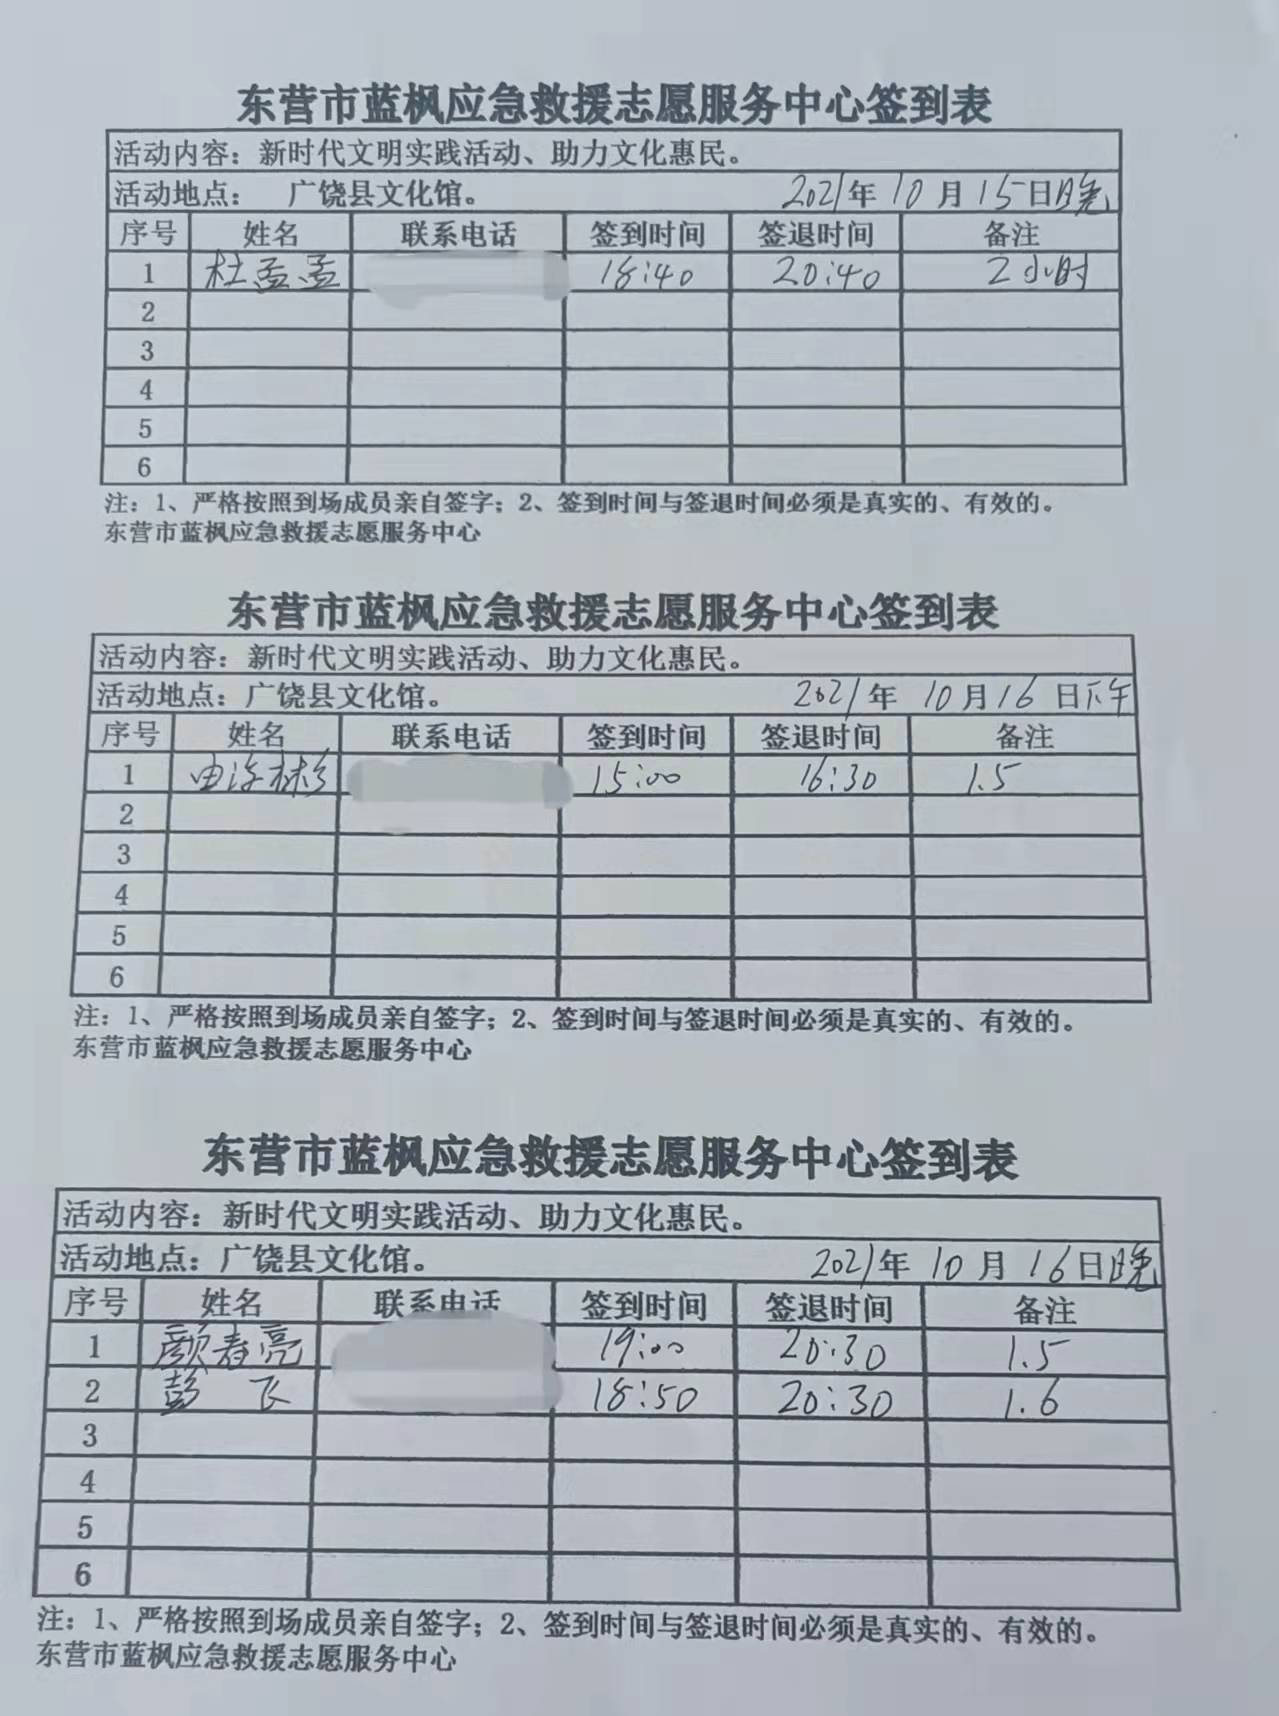 东营市蓝枫应急救援志愿服务中心签到表
活动内容：新时代文明实践活动、助力文化惠民。
活动地点： 广饶县文化馆。 2021年 10 月 15日晚
序号 姓名 联系电话 签到时间 签退时间 备注
1 杜孟孟 18:40 20:40 2小时
2
3
4
5
6
注：1、严格按照到场成员亲自签字；2、签到时间与签退时间必须是真实的、有效的。
东营市蓝枫应急救援志愿服务中心
东营市蓝枫应急救援志愿服务中心签到表
活动内容：新时代文明实践活动、助力文化惠民。
活动地点：广饶县文化馆。 2021年 10月16 日下午
序号 姓名 联系电话 签到时间 签退时间 备注
1 15:00 16:30 1.5
2
3
4
5
6
注：1、严格按照到场成员亲自签字；2、签到时间与签退时间必须是真实的、有效的。
东营市蓝枫应急救援志愿服务中心
东营市蓝枫应急救援志愿服务中心签到表
活动内容：新时代文明实践活动、助力文化惠民。
活动地点：广饶县文化馆。 2021年 10 月 16日晚
序号 姓名 联系电话 签到时间 签退时间 备注
1 颜春亮 19:00 20:30 1.5
2 彭 飞 18:50 20:30 1.6
3
4
5
6
注：1、严格按照到场成员亲自签字；2、签到时间与签退时间必须是真实的、有效的。
东营市蓝枫应急救援志愿服务中心